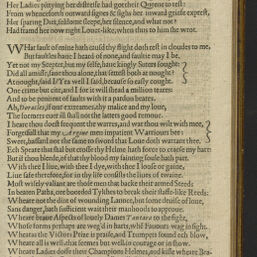 Her Ladies pittying her distressed had got their Queene to rest:
From whencefoorth outward signes & sighs her inward griefe exprest,
Her sparing Diet, ... Sleepe, her ... and what not?
Had framd her now right Louer-like, when thus to him she wrot.
What fault of mine hath caus'd thy flight doth rest in cloudes to me,
But faultles haue I heard of none, and faultie I may be.
Yet not my Scepter, but my selfe, haue kingly Suters sought:
Did all amisse, saue thou alone, that settest both at nought?
At nought, said I? Yea well I said, because so easly cought.
One crime but cite, and I for it will shead a million teares:
And to be penitent of faults with it a pardon beares.
Ah, ... of your extreames, thy malice and my loue,
The formers rate ill shall not the latters good remoue.
I heare thou doest frequent the warres, and war thou wilt with me,
Forgetfull that my Argiue men impatient Warriours bee:
Sweet, hassard not the same to sword that Loue doth warrant thee.
Ech Speare that shal but crosse thy Helme hath force to craze my hart:
But if thou bleede, of that thy blood my fainting soule hath part.
With thee I liue, with thee I dye, with thee I loose or gaine,
Liue safe therefore, for in thy life consists the liues of twaine.
Most wisely valiant are those men that backe their armed Steeds
In beaten Paths, or boorded Tylths to breake their staffe-like Reeds:
Wheare not the dint of wounding Launce, but some deuise of loue,
Sans danger, hath sufficient wait their manhoods to approue.
Wheare braue Aspects of louely Dames Tantara to the fight,
Whose forms perhaps are wei'd in harts, whil Fauours wag in sight.
Wheat as the Victors Prize is praise, and Trumpets sound ech blow,
Wheare all is well that seemes but well in courage or in show.
Wheare Ladies doffe their Champions Helmes, and kisse wheare